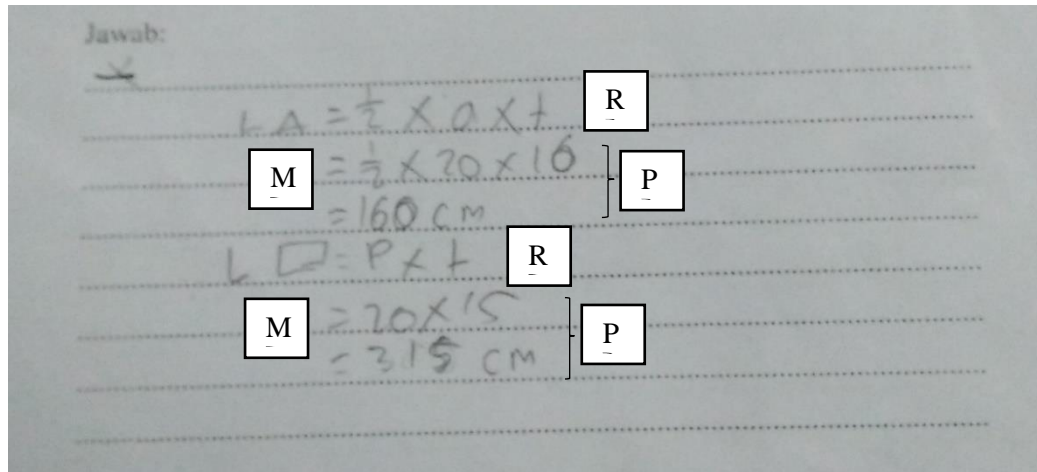 Jawab:
L △ = 1/2 × a × t R
M = 1/2 × 20 × 16 P
= 160 cm
L ▭ = P × t R
M = 20 × 15 P
= 315 cm